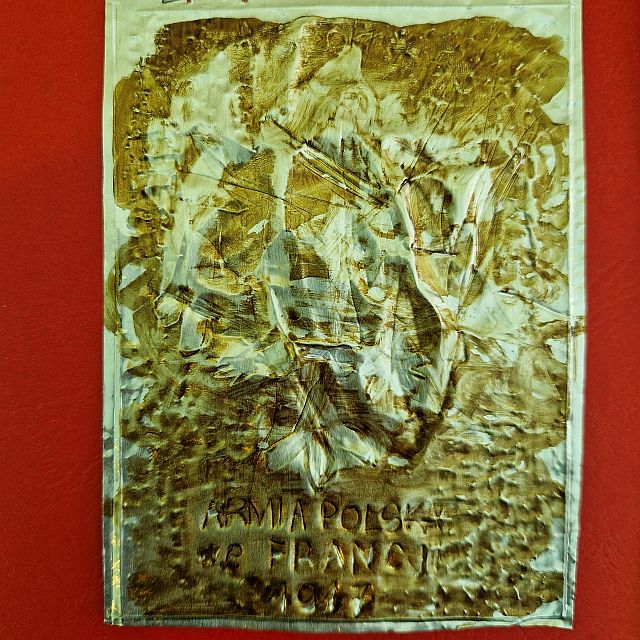 ARMIA POLSKA
W FRANCJI
1917